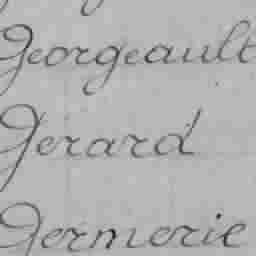 Georgeault
Gérard
Germerie